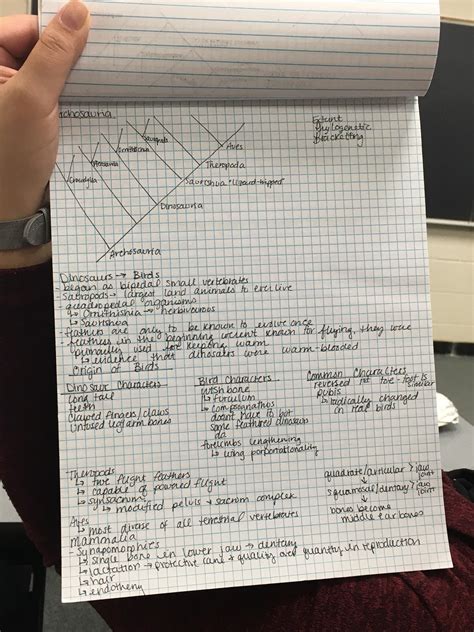 Archosauria
Extant
Phylogenetic
Bracketing
Sauropods
Ornithischia
Pterosauria
Crocodylia
Aves
Theropoda
Saurischia "lizard-hipped"
Dinosauria
Archosauria
Dinosaurs → Birds
- began as bipedal small vertebrates
- Sauropods → largest land animals to ever live
- quadrupedal organisms
↳ Ornithishia → herbivorous
↳ Saurishia
- feathers are only to be known to evolve once
- feathers in the beginning weren't known for flying, they were
primarily used for keeping warm
↳ evidence that dinosaurs were warm-blooded
Origin of Birds
Dinosaur Characters
long tail
teeth
Clawed fingers/claws
unfused leg/arm bones
Bird Characters
wishbone
↳ furculum
↳ compsognathus
doesn't have it but
some feathered dinosaurs
do
forelimbs lengthening
↳ wing porportionality
Common Characters
reversed 1st toe - foot is similar
pubis
↳ radically changed
in real birds
Theropods
↳ true flight feathers
↳ capable of powered flight
↳ synsacrum
↳ modified pelvis + sacrum complex
Aves
↳ most diverse of all terrestrial vertebrates
Mammalia
- Synapomorphies
↳ single bone in lower jaw → dentary
↳ lactation → protective care + quality over quantity in reproduction
↳ hair
↳ endothermy
quadrate/articular > jaw joint
squamosal/dentary > jaw joint
bones become
middle ear bones